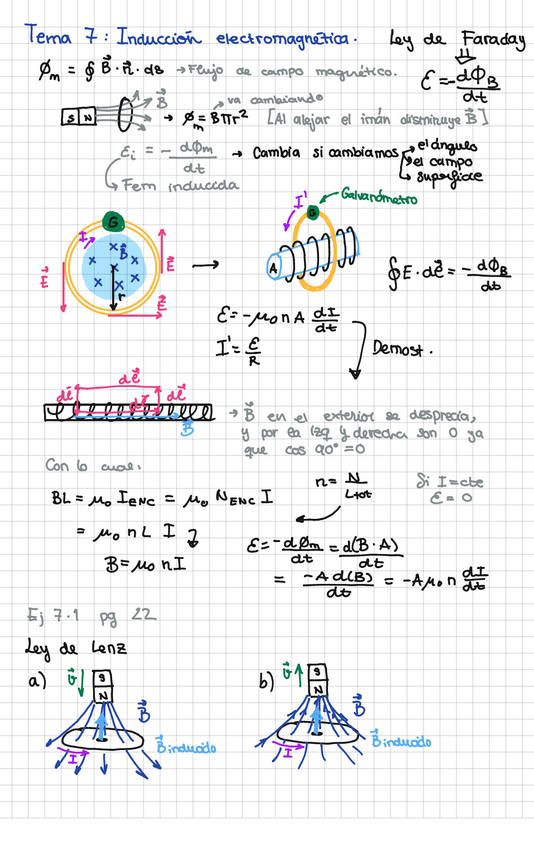 Tema 7: Inducción electromagnética.
Ley de Faraday
ε = -dΦB/dt
Øm = ∮ B⃗ · n⃗ · ds → Flujo de campo magnético.
S N
B⃗
va cambiando
→ Øm = Bπr² [Al alejar el imán disminuye B⃗]
εi = - dØm/dt → Cambia si cambiamos
el ángulo
el campo
superficie
Fem inducida
G
I
B⃗
r
E⃗
E⃗
E⃗
I'
G
Galvanómetro
A
∮E · dℓ⃗ = - dΦB/dt
ε = -μ₀ n A dI/dt
I' = ε/R
Demost.
dℓ⃗
dℓ⃗
dℓ⃗
dℓ⃗
B⃗
→ B⃗ en el exterior se desprecia,
y por la izq y derecha son 0 ya
que cos 90° = 0
Con lo cual:
n = N/Ltot
Si I=cte
ε = 0
BL = μ₀ IENC = μ₀ NENC I
= μ₀ n L I
B = μ₀ n I
ε = -dØm/dt = d(B · A)/dt
= -A d(B)/dt = -A μ₀ n dI/dt
Ej 7.1 pg 22
Ley de Lenz
a)
v⃗
S
N
B⃗
B⃗ inducido
I
b)
v⃗
S
N
B⃗
B⃗ inducido
I